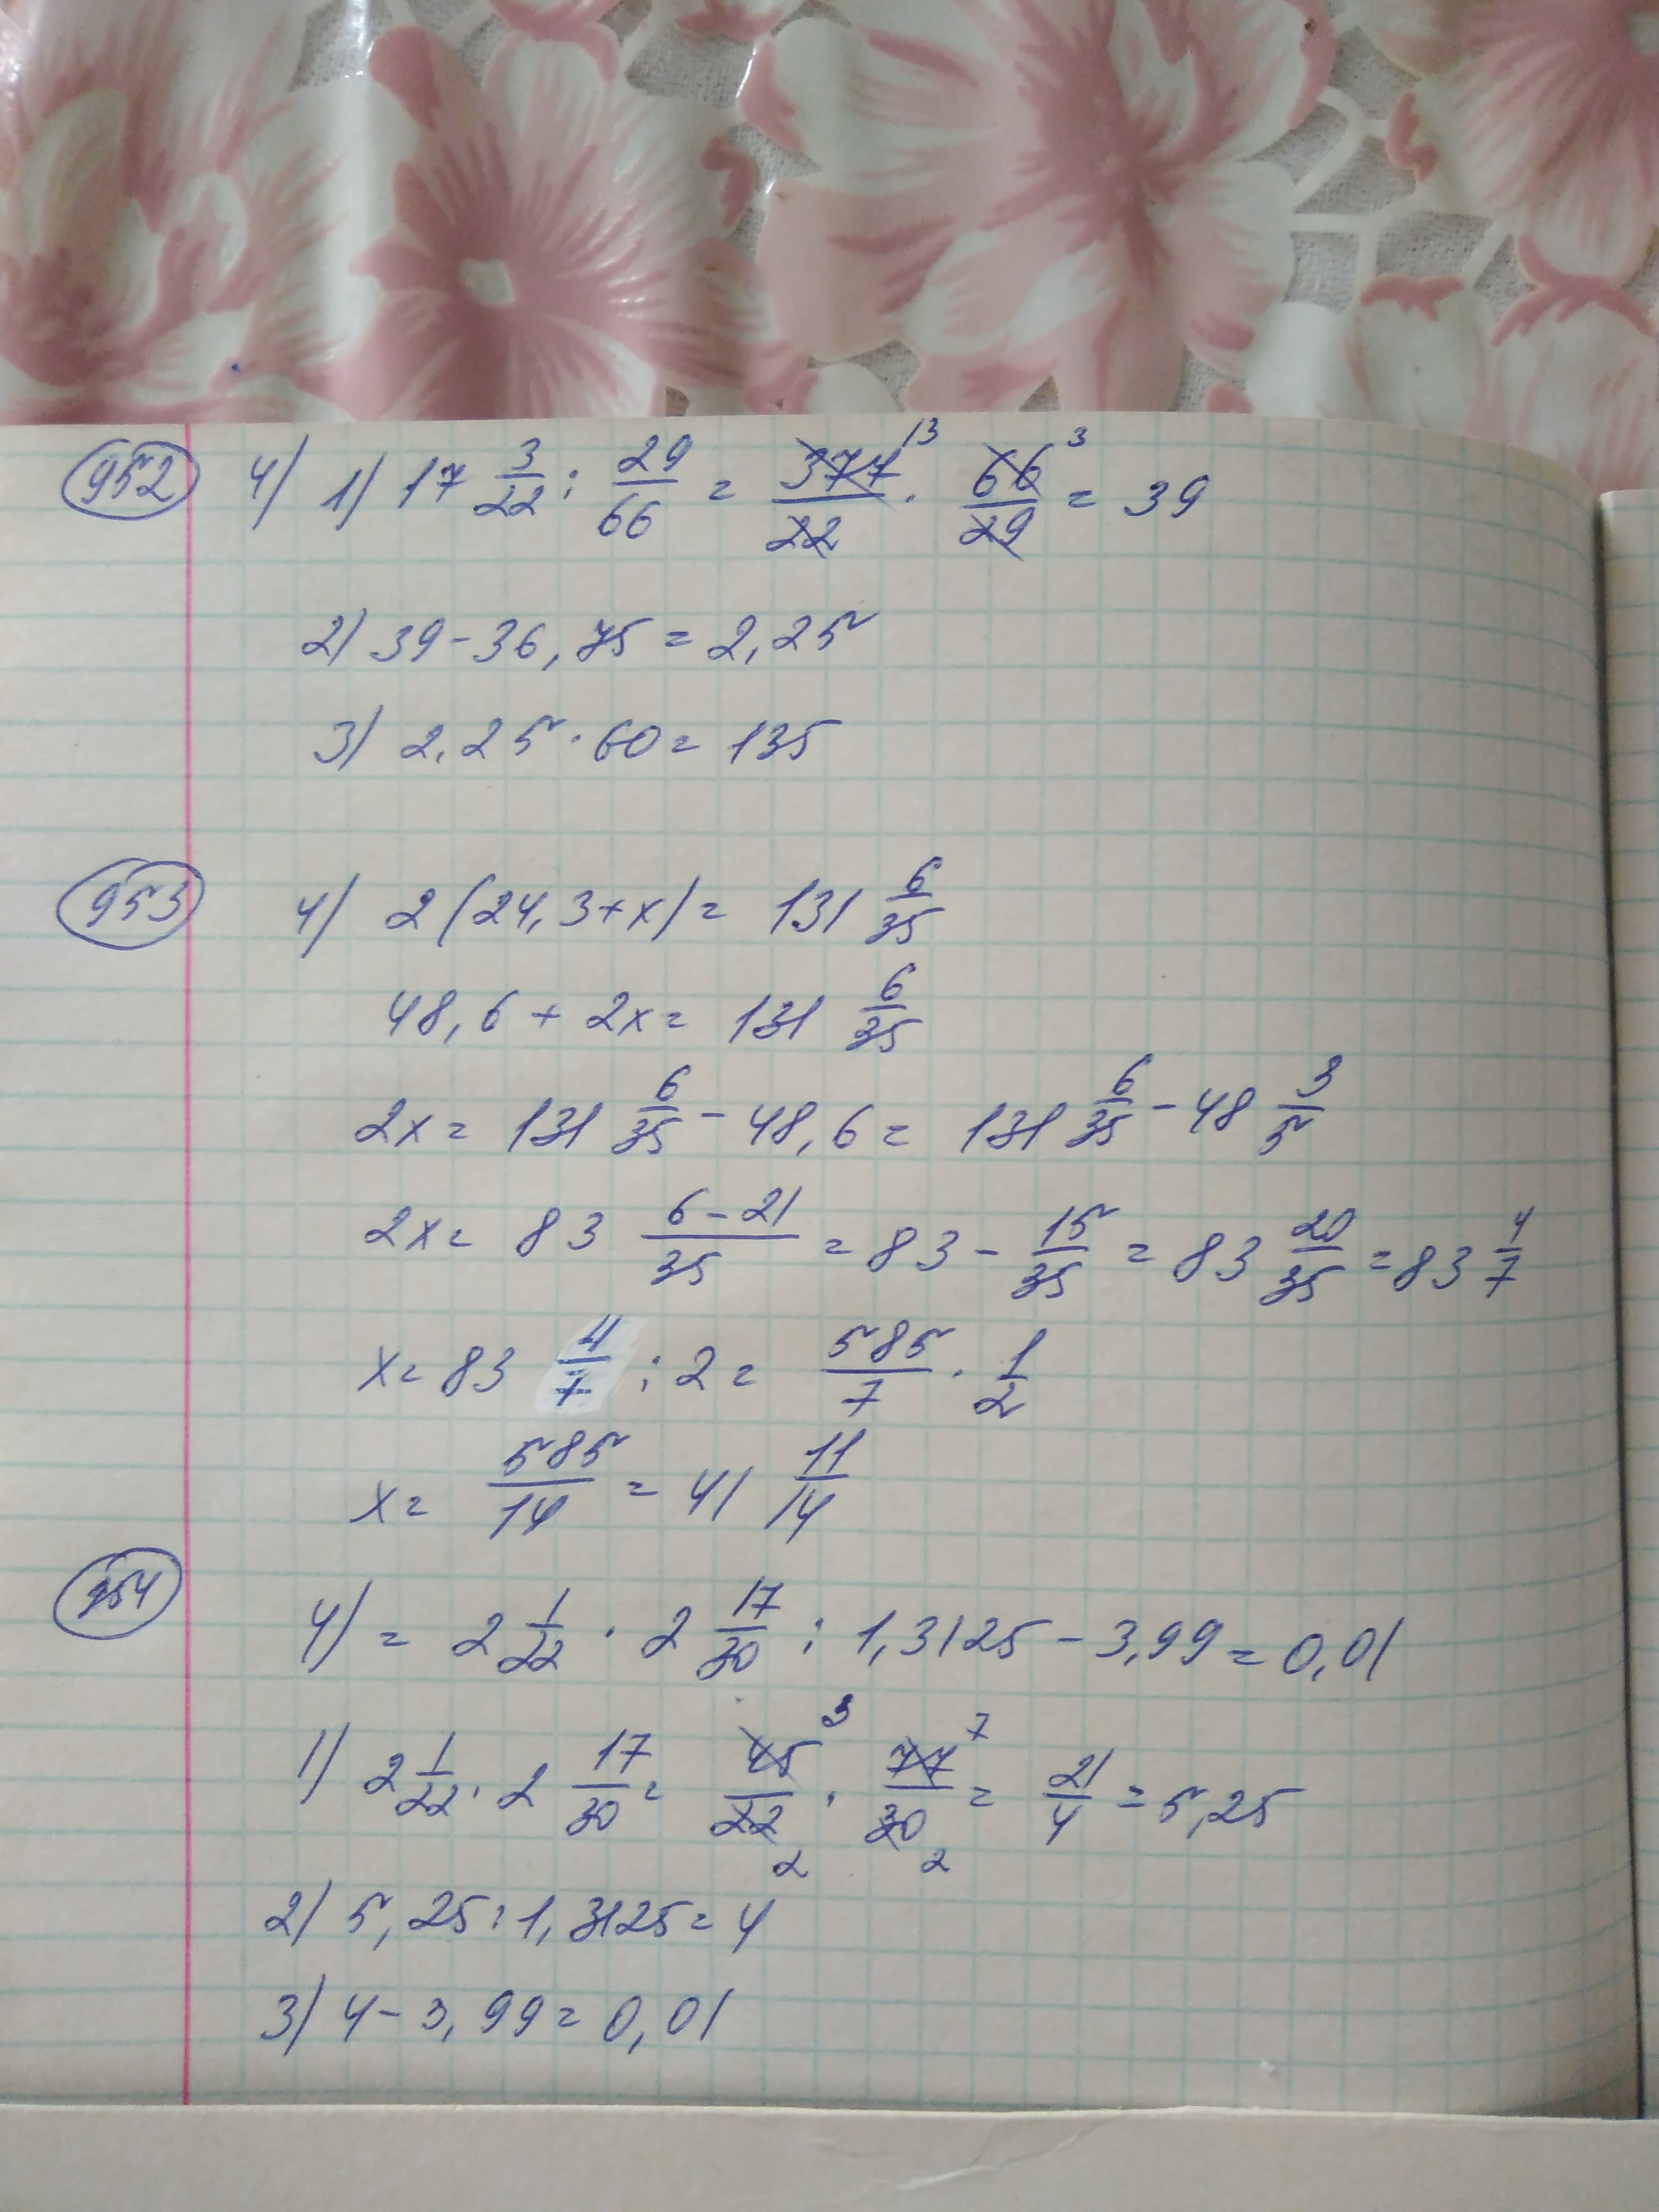 952 4) 1) 17 3/22 : 29/66 = 377/22 13 · 66/29 3 = 39
2) 39 - 36,75 = 2,25
3) 2,25 · 60 = 135
953 4) 2(24,3+x) = 131 6/35
48,6 + 2x = 131 6/35
2x = 131 6/35 - 48,6 = 131 6/35 - 48 3/5
2x = 83 (6-21)/35 = 83 - 15/35 = 83 20/35 = 83 4/7
x = 83 4/7 : 2 = 585/7 · 1/2
x = 585/14 = 41 11/14
954 4) = 2 1/22 · 2 17/30 : 1,3125 - 3,99 = 0,01
1) 2 1/22 · 2 17/30 = 45/22 3 2 · 77/30 7 2 = 21/4 = 5,25
2) 5,25 : 1,3125 = 4
3) 4 - 3,99 = 0,01